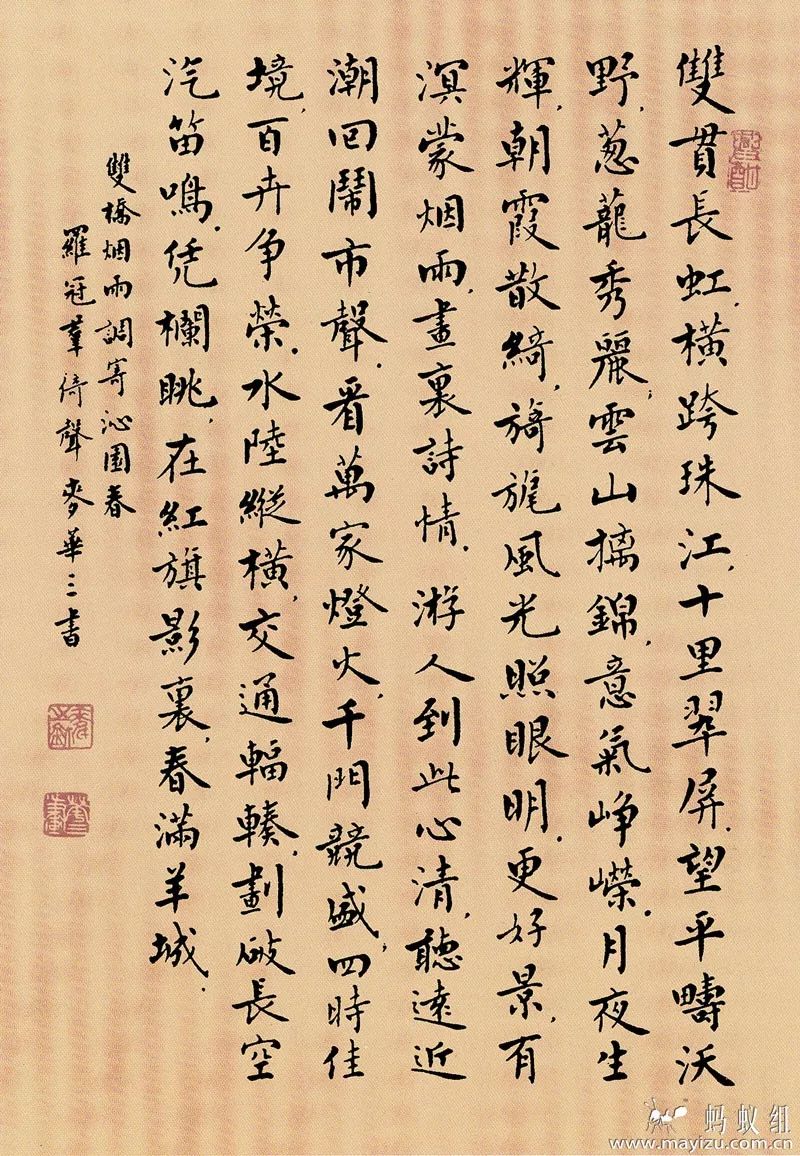 雙貫長虹，橫跨珠江，十里翠屏。望平疇沃
野，葱蘢秀麗；雲山摛錦，意氣崢嶸。月夜生
輝，朝霞散綺，旖旎風光照眼明。更好景，有
溟蒙烟雨，畫裏詩情。游人到此心清，聽遠近
潮回鬧市聲。看萬家燈火，千門競盛，四時佳
境，百卉争榮。水陸縱橫，交通輻輳，劃破長空
汽笛鳴。凭欄眺，在紅旗影裏，春滿羊城。
雙橋烟雨調寄沁園春
羅冠羣倚聲麥華三書
蚂蚁组
www.mayizu.com.cn